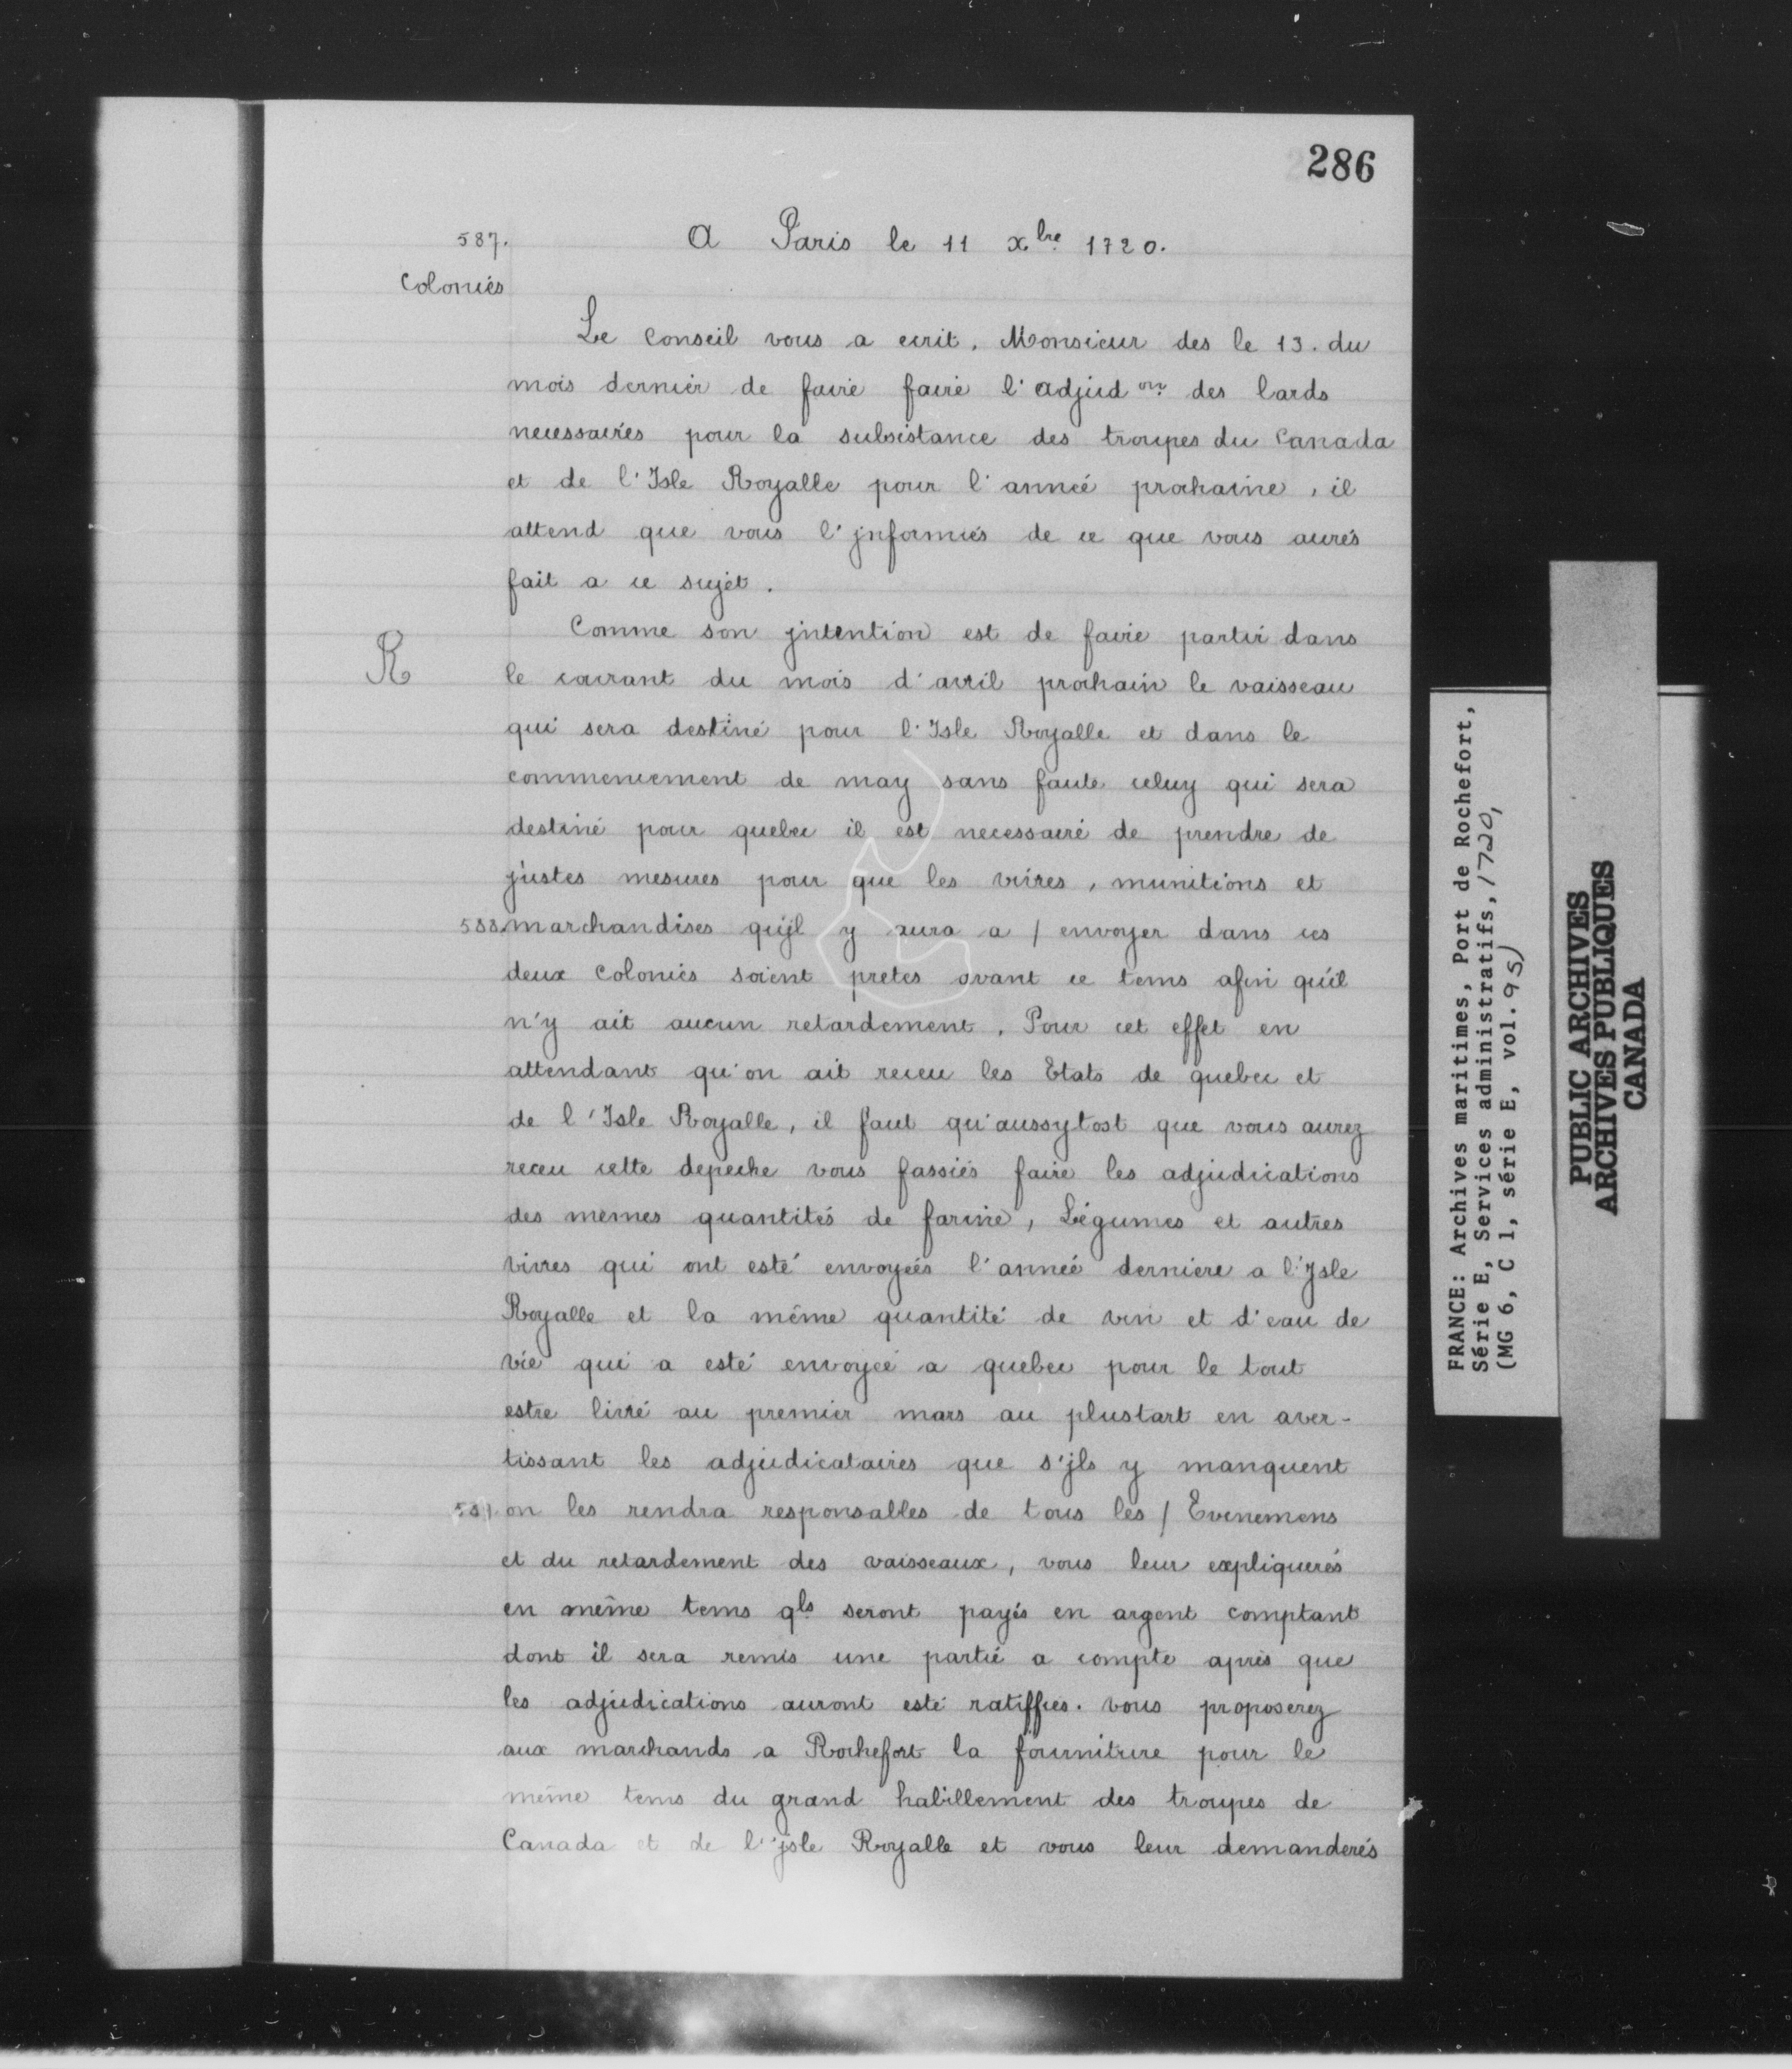 286
587.
A Paris le 11 xbre 1720.
Coloniés
Le Conseil vous a ecrit. Monsieur des le 13. du
mois dernier de faire faire l'adjudon des lards
necessaires pour la subsistance des troupes du Canada
et de l'Isle Royalle pour l'année prochaine, il
attend que vous l'jnformiés de ce que vous aurés
fait a ce sujet.
R
Comme son jntention est de faire partir dans
le courant du mois d'avril prochain le vaisseau
qui sera destiné pour l'Isle Royalle et dans le
commencement de may sans faute celuy qui sera
destiné pour quebec il est necessaire de prendre de
justes mesures pour que les vivres, munitions et
588. marchandises qu'jl y aura a / envoyer dans ces
deux Colonies soient pretes avant ce tems afin qu'il
n'y ait aucun retardement. Pour cet effet en
attendant qu'on ait receu les Etats de quebec et
de l'Isle Royalle, il faut qu'aussytost que vous aurez
receu cette depeche vous fassiés faire les adjudications
des memes quantités de farine, Légumes et autres
vivres qui ont esté envoyées l'année derniere a l'Jsle
Royalle et la même quantité de vin et d'eau de
vie qui a esté envoyée a quebec pour le tout
estre livré au premier mars au plustart en aver-
tissant les adjudicataires que s'jls y manquent
589. on les rendra responsables de tous les / Evenemens
et du retardement des vaisseaux, vous leur expliquerés
en même tems qls seront payés en argent comptant
dont il sera remis une partie a compte après que
les adjudications auront esté ratiffiés. vous proposerez
aux marchands a Rochefort la fourniture pour le
même tems du grand habillement des troupes de
Canada et de l'jsle Royalle et vous leur demanderés
FRANCE: Archives maritimes, Port de Rochefort,
Série E, Services administratifs, 1720,
(MG 6, C 1, série E, vol. 95)
PUBLIC ARCHIVES
ARCHIVES PUBLIQUES
CANADA